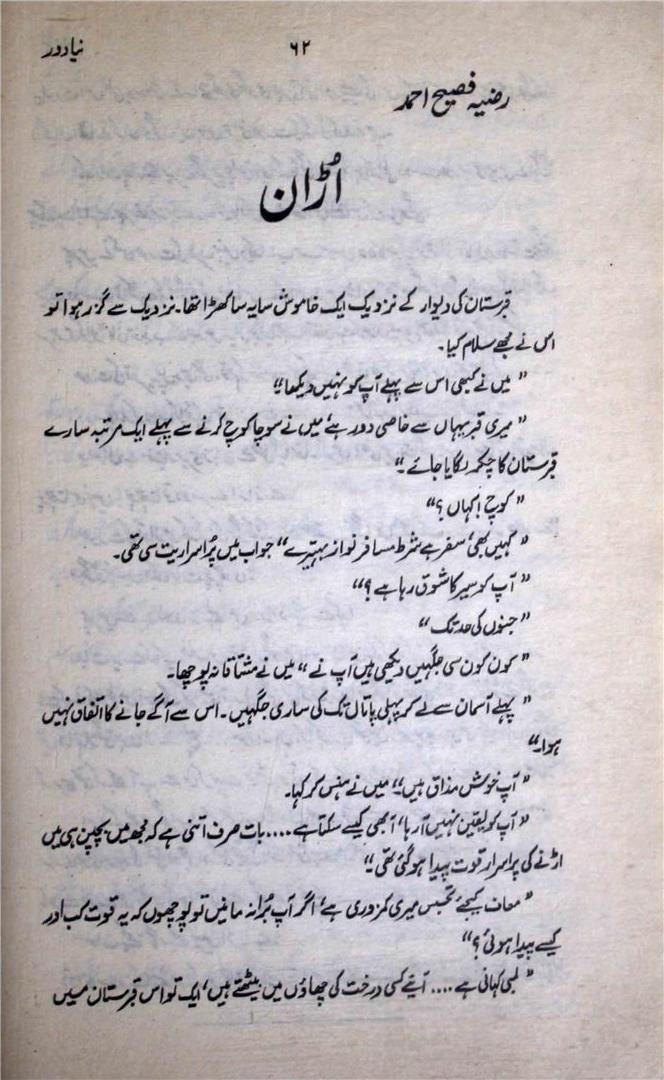 نیا دور
۶۲
رضیہ فصیح احمد
اُڑان
قبرستان کی دیوار کے نزدیک ایک خاموش سایہ سا کھڑا تھا۔ نزدیک سے گزر ہوا تو
اس نے مجھے سلام کیا۔
” میں نے کبھی اس سے پہلے آپ کو نہیں دیکھا “
” میری قبر یہاں سے خاصی دور ہے، میں نے سوچا کوچ کرنے سے پہلے ایک مرتبہ سارے
قبرستان کا چکر لگایا جائے ۔“
” کوچ ! کہاں ؟“
” کہیں بھی، سفر ہے شرط مسافر نواز بہتیرے“ جواب میں پُراسراریت سی تھی۔
” آپ کو سیر کا شوق رہا ہے ؟“
” جنوں کی حد تک “
” کون کون سی جگہیں دیکھی ہیں آپ نے “ میں نے مشتاقانہ پوچھا۔
” پہلے آسمان سے لے کر پہلی پاتال تک کی ساری جگہیں۔ اس سے آگے جانے کا اتفاق نہیں
ہوا۔“
” آپ خوش مذاق ہیں۔“ میں نے ہنس کر کہا۔
” آپ کو یقین نہیں آ رہا، آ بھی کیسے سکتا ہے .... بات صرف اتنی ہے کہ مجھ میں بچپن ہی میں
اڑنے کی پراسرار قوت پیدا ہو گئی تھی ۔“
” معاف کیجیے تجسس میری کمزوری ہے، اگر آپ بُرا نہ مانیں تو پوچھوں کہ یہ قوت کب اور
کیسے پیدا ہوئی ؟“
” لمبی کہانی ہے .... آئیے کسی درخت کی چھاؤں میں بیٹھتے ہیں، ایک تو اس قبرستان میں